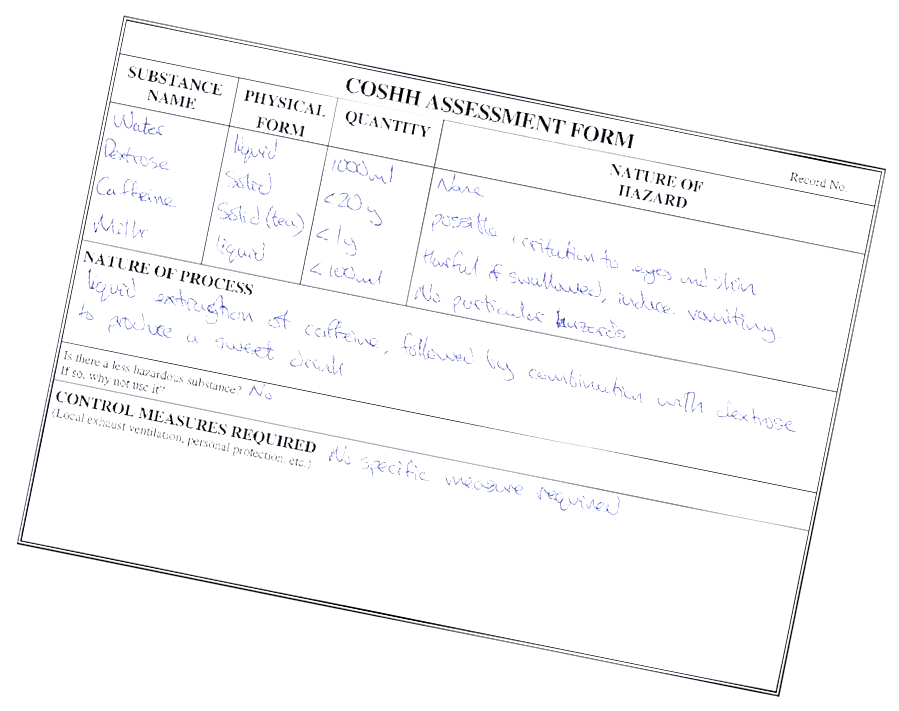 COSHH ASSESSMENT FORM
Record No.
SUBSTANCE NAME PHYSICAL FORM QUANTITY NATURE OF HAZARD
Water liquid 1000ml None
Dextrose Solid <20g possible irritation to eyes and skin
Caffeine Solid (tea) <1g Harful if swallowed, induce vomiting.
Milk liquid <100ml No particular hazards
NATURE OF PROCESS
liquid extraction of caffeine, followed by combination with dextrose
to produce a sweet drink
Is there a less hazardous substance? No
If so, why not use it?
CONTROL MEASURES REQUIRED No specific measure required
(Local exhaust ventilation, personal protection, etc.)